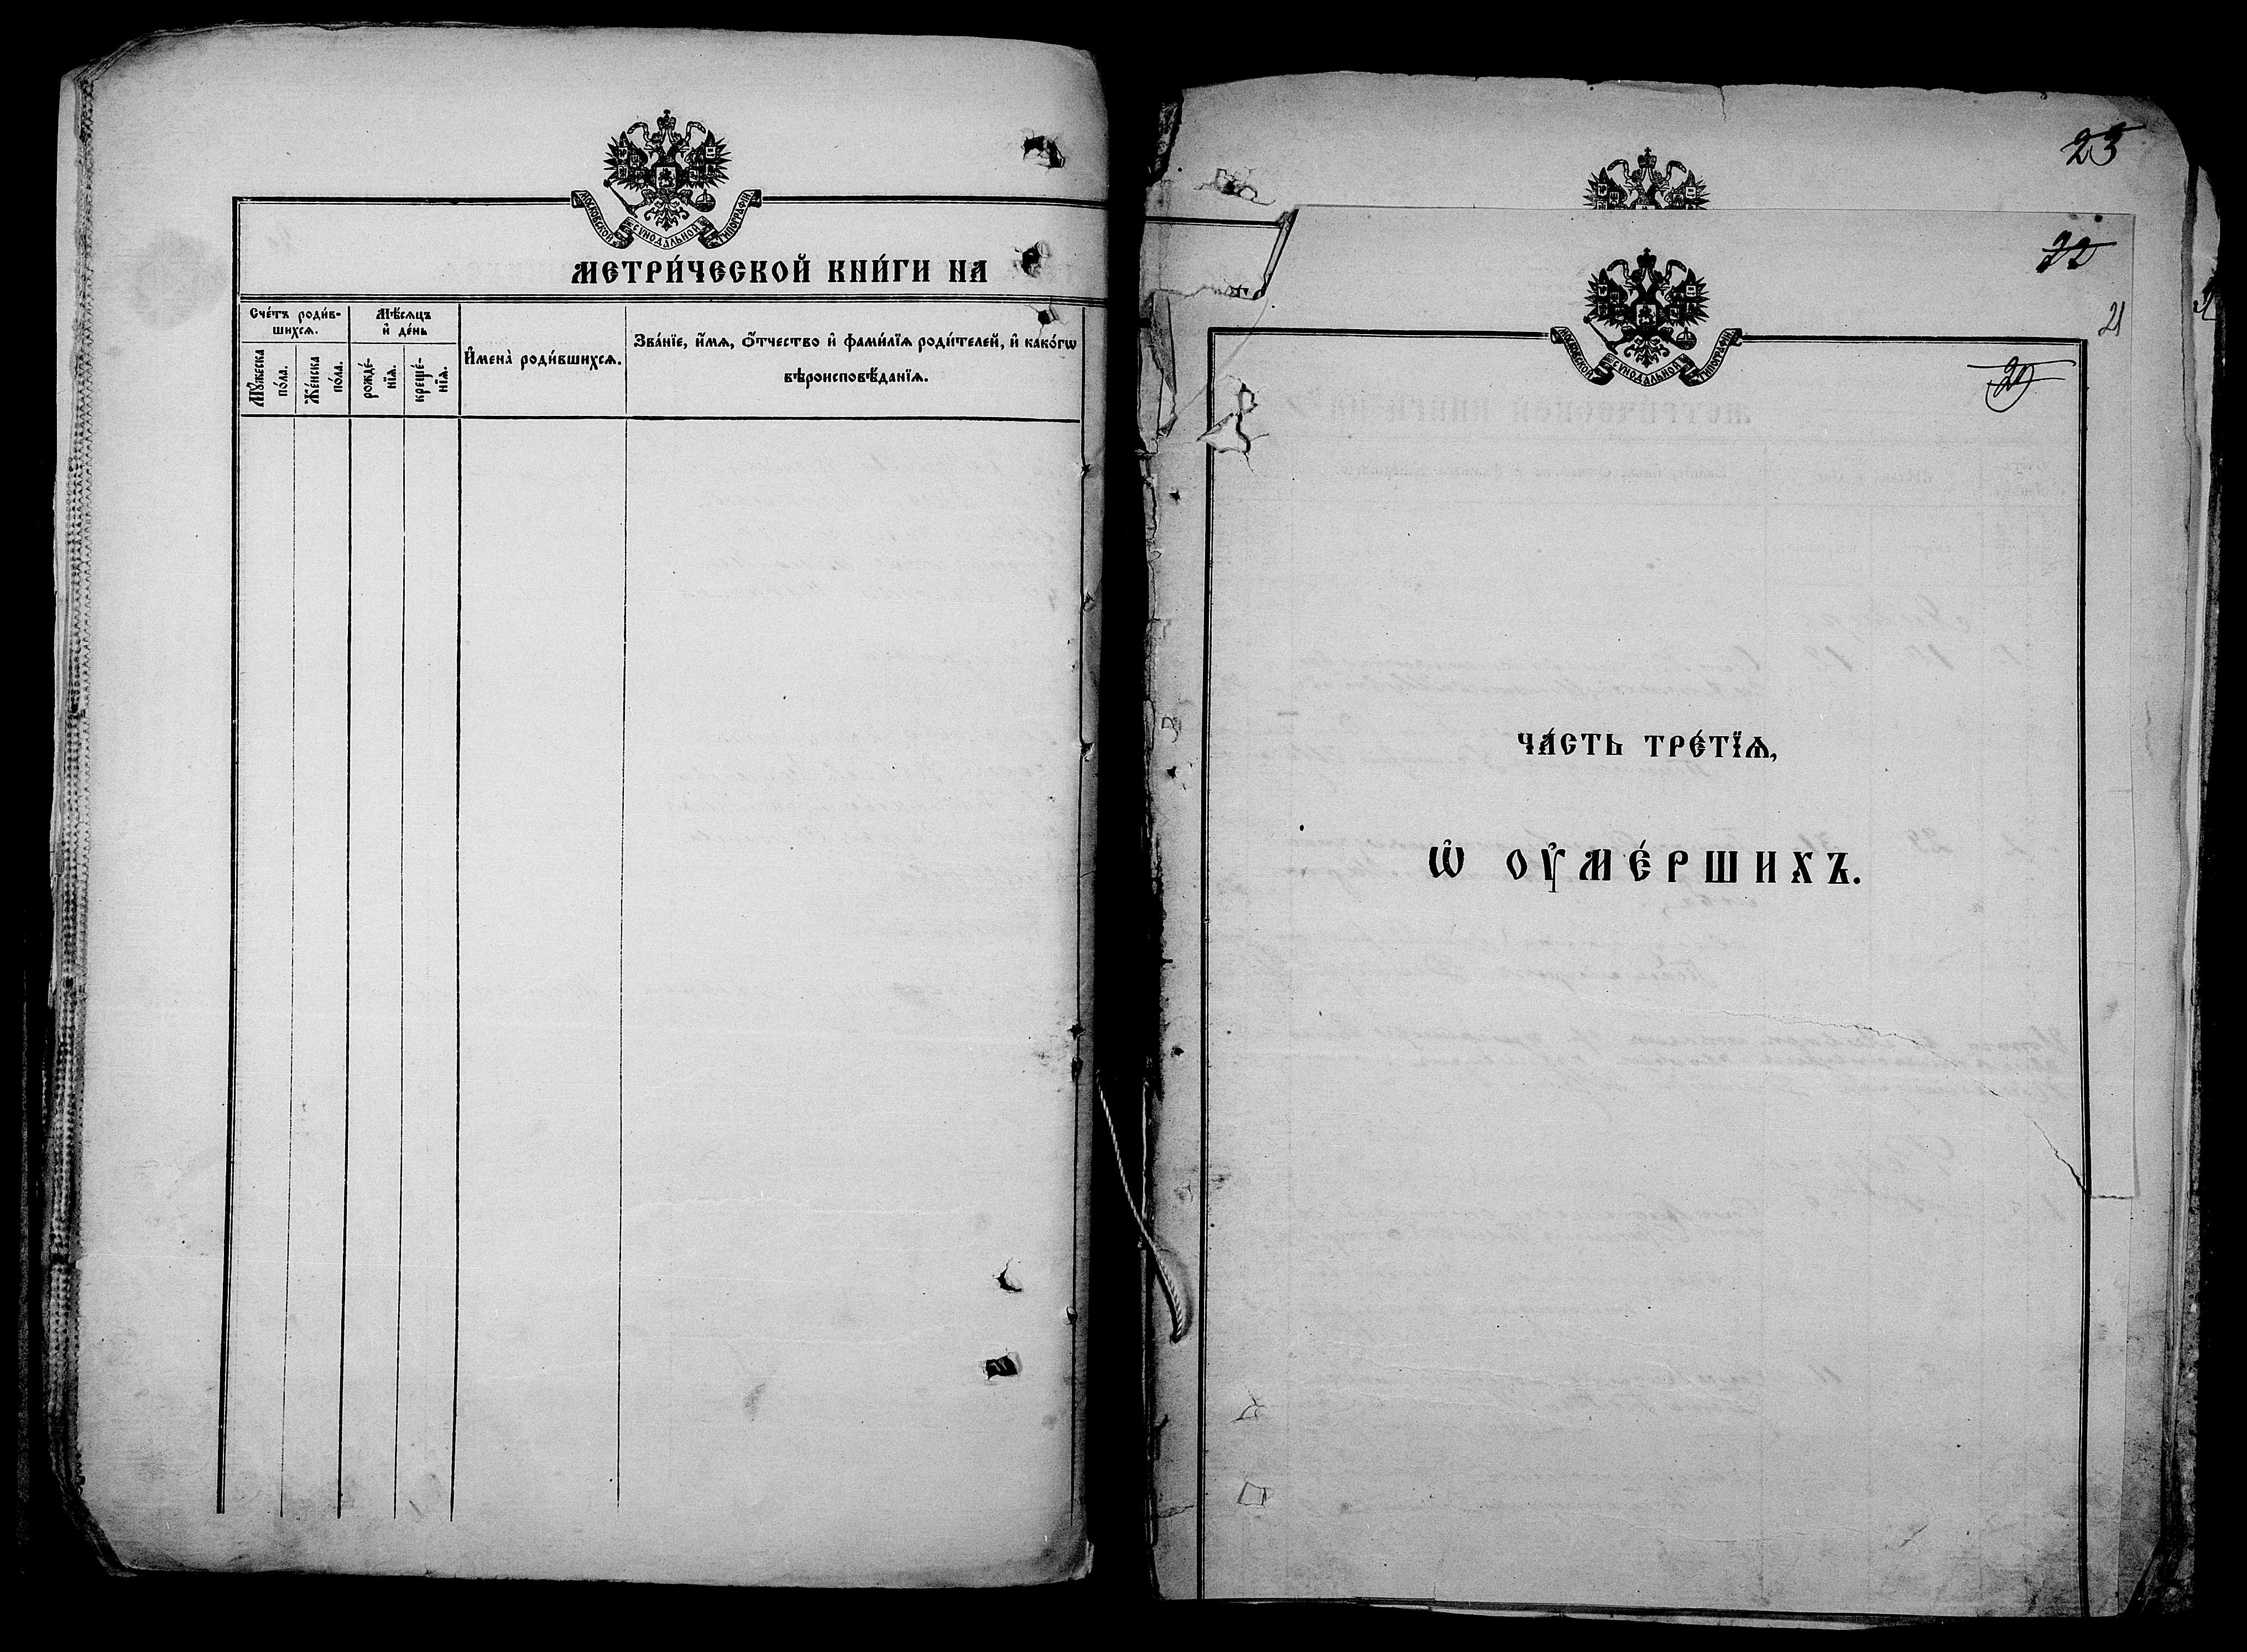 МОСКОВСКОЙ СѴНОДАЛЬНОЙ ТИПОГРАФІИ
МЕТРИ́ЧЕСКОЙ КНИ́ГИ НА
Сче́тъ роди́в-
шихсѧ.
Мѣ́сѧцъ
и҆ де́нь
И҆мена̀ роди́вшихсѧ.
Зва́нїе, и҆́мѧ, ѻ҆́тчество и҆ фами́лїѧ роди́телей, и҆ како́гѡ
вѣроисповѣ́данїѧ.
Мꙋ́жеска
по́ла.
Же́нска
по́ла.
рожде́-
нїѧ.
креще́-
нїѧ.
23
22
21
20
МОСКОВСКОЙ СѴНОДАЛЬНОЙ ТИПОГРАФІИ
ЧА́СТЬ ТРЕ́ТЇѦ,
Ѡ҆ ОУ҆МЕ́РШИХЪ.